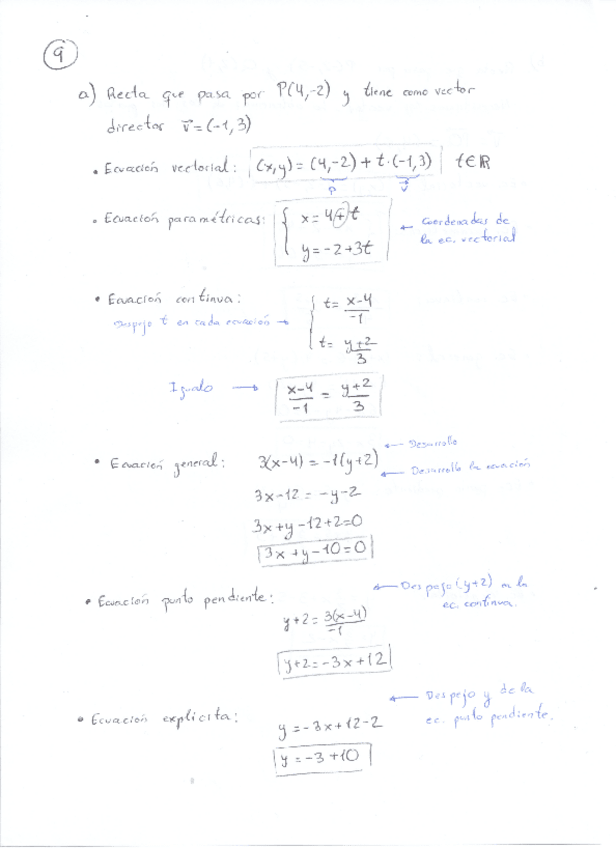 9
a) Recta que pasa por P(4,-2) y tiene como vector
director v⃗=(-1,3)
• Ecuación vectorial: (x,y)=(4,-2)+t·(-1,3) t∈ℝ
P v⃗
• Ecuación paramétricas: { x=4+t
y=-2+3t
← Coordenadas de
la ec. vectorial
• Ecuación continua: { t= (x-4)/-1
Despejo t en cada ecuación →
t= (y+2)/3
Igualo → (x-4)/-1 = (y+2)/3
• Ecuación general: 3(x-4)=-1(y+2) ← Desarrollo
← Desarrollo la ecuación
3x-12=-y-2
3x+y-12+2=0
3x+y-10=0
• Ecuación punto pendiente: ← Despejo (y+2) en la
ec. continua.
y+2= 3(x-4)/-1
y+2=-3x+12
• Ecuación explicita: ← Despejo y de la
ec. punto pendiente.
y=-3x+12-2
y=-3+10